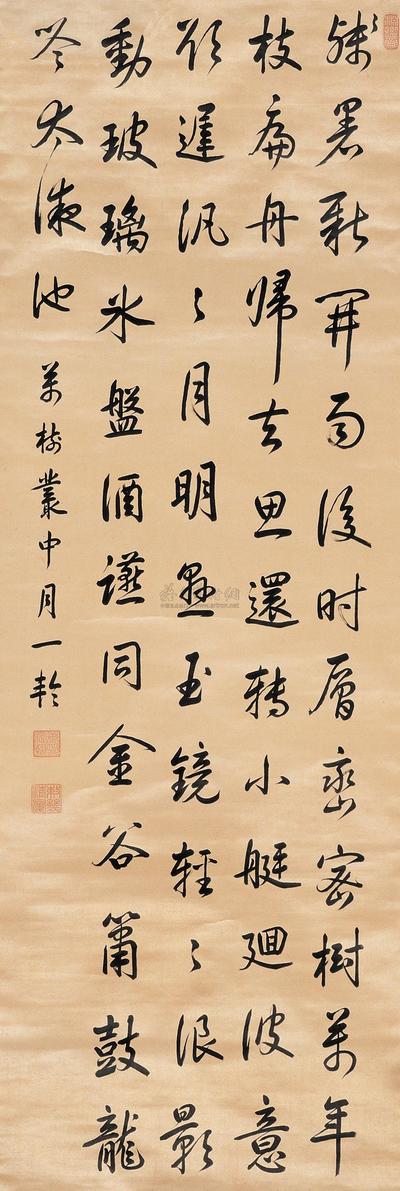 殘暑新開雨後时層巒密樹萬年
枝扁舟歸去思還轉小艇迴波意
欲遲汎〻月明懸玉鏡輕〻浪影
動玻璃氷盤酒讌同金谷簫鼓龍
吟太液池
萬樹叢中月一輪